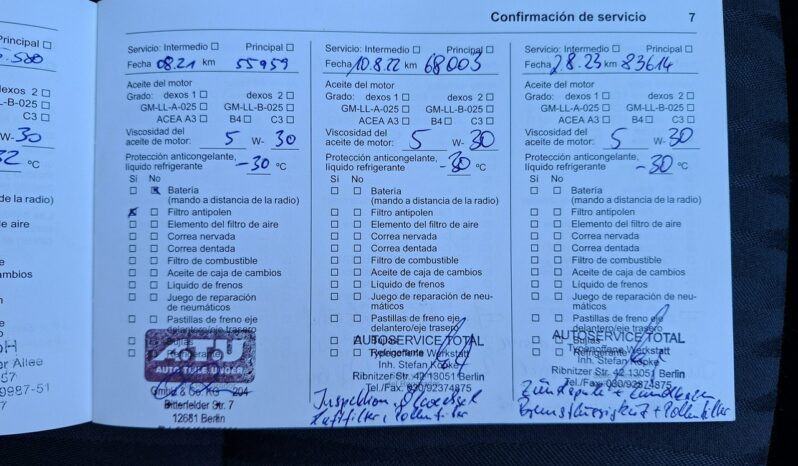 Confirmación de servicio 7
Principal ☐
5.500
dexos 2 ☐
LL-B-025 ☐
C3 ☐
W-30
32 °C
de la radio)
e aire
ambios
bH
er Allee
57
9987-51
Servicio: Intermedio ☐ Principal ☐
Fecha 08.21 km 55959
Aceite del motor
Grado: dexos 1 ☐ dexos 2 ☐
GM-LL-A-025 ☐ GM-LL-B-025 ☐
ACEA A3 ☐ B4 ☐ C3 ☐
Viscosidad del
aceite de motor: 5 W- 30
Protección anticongelante,
líquido refrigerante -30 °C
Sí No
☐ ☒ Batería
(mando a distancia de la radio)
☒ ☐ Filtro antipolen
☐ ☐ Elemento del filtro de aire
☐ ☐ Correa nervada
☐ ☐ Correa dentada
☐ ☐ Filtro de combustible
☐ ☐ Aceite de caja de cambios
☐ ☐ Líquido de frenos
☐ ☐ Juego de reparación
de neumáticos
☐ ☐ Pastillas de freno eje
delantero/eje trasero
☐ ☐ Bujías
☐ ☐ Refrigerante
ATU
AUTO TEILE UNGER
GmbH & Co. KG 204
Bitterfelder Str. 7
12681 Berlin
Servicio: Intermedio ☐ Principal ☐
Fecha 10.8.22 km 68003
Aceite del motor
Grado: dexos 1 ☐ dexos 2 ☐
GM-LL-A-025 ☐ GM-LL-B-025 ☐
ACEA A3 ☐ B4 ☐ C3 ☐
Viscosidad del
aceite de motor: 5 W-30
Protección anticongelante,
líquido refrigerante -30 °C
Sí No
☐ ☐ Batería
(mando a distancia de la radio)
☐ ☐ Filtro antipolen
☐ ☐ Elemento del filtro de aire
☐ ☐ Correa nervada
☐ ☐ Correa dentada
☐ ☐ Filtro de combustible
☐ ☐ Aceite de caja de cambios
☐ ☐ Líquido de frenos
☐ ☐ Juego de reparación de neu-
máticos
☐ ☐ Pastillas de freno eje
delantero/eje trasero
☐ ☐ Bujías
☐ ☐ Refrigerante
AUTOSERVICE TOTAL
Typenoffene Werkstatt
Inh. Stefan Köpke
Ribnitzer Str. 42 13051 Berlin
Tel./Fax. 030/92374875
Inspektion, Ölwechsel
Luftfilter, Pollenfilter
Servicio: Intermedio ☐ Principal ☐
Fecha 2.8.23 km 83614
Aceite del motor
Grado: dexos 1 ☐ dexos 2 ☐
GM-LL-A-025 ☐ GM-LL-B-025 ☐
ACEA A3 ☐ B4 ☐ C3 ☐
Viscosidad del
aceite de motor: 5 W-30
Protección anticongelante,
líquido refrigerante -30 °C
Sí No
☐ ☐ Batería
(mando a distancia de la radio)
☐ ☐ Filtro antipolen
☐ ☐ Elemento del filtro de aire
☐ ☐ Correa nervada
☐ ☐ Correa dentada
☐ ☐ Filtro de combustible
☐ ☐ Aceite de caja de cambios
☐ ☐ Líquido de frenos
☐ ☐ Juego de reparación de neu-
máticos
☐ ☐ Pastillas de freno eje
delantero/eje trasero
☐ ☐ Bujías
☐ ☐ Refrigerante
AUTOSERVICE TOTAL
Typenoffene Werkstatt
Inh. Stefan Köpke
Ribnitzer Str. 42 13051 Berlin
Tel./Fax. 030/92374875
+ Zündkerzen
Bremsflüssigkeit + Pollenfilter